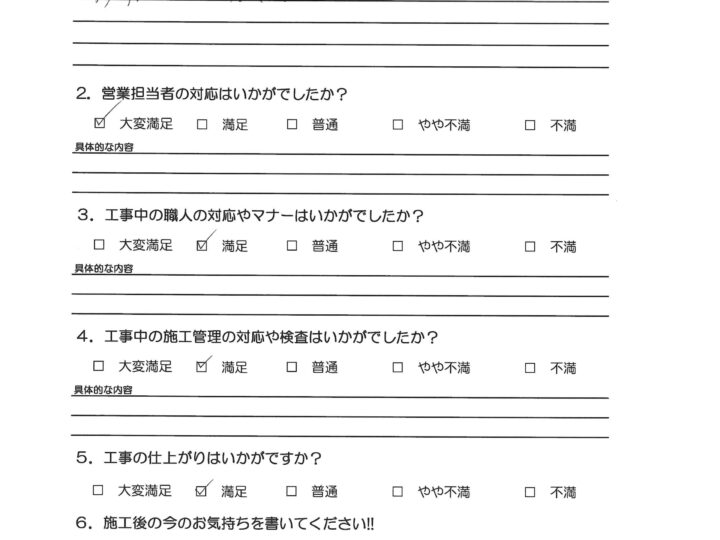 2. 営業担当者の対応はいかがでしたか？
☑ 大変満足 □ 満足 □ 普通 □ やや不満 □ 不満
具体的な内容
3. 工事中の職人の対応やマナーはいかがでしたか？
□ 大変満足 ☑ 満足 □ 普通 □ やや不満 □ 不満
具体的な内容
4. 工事中の施工管理の対応や検査はいかがでしたか？
□ 大変満足 ☑ 満足 □ 普通 □ やや不満 □ 不満
具体的な内容
5. 工事の仕上がりはいかがですか？
□ 大変満足 ☑ 満足 □ 普通 □ やや不満 □ 不満
6. 施工後の今のお気持ちを書いてください!!